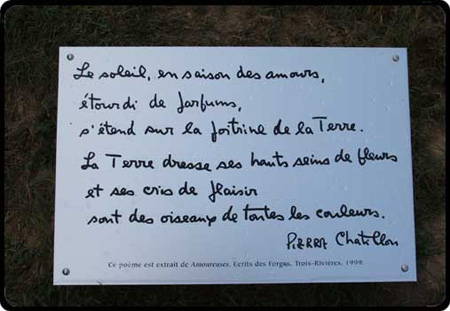 Le soleil, en saison des amours,
étourdi de parfums,
s'étend sur la poitrine de la Terre.
La Terre dresse ses hauts seins de fleurs
et ses cris de plaisir
sont des oiseaux de toutes les couleurs.
PIERRE Chatillon
Ce poème est extrait de Amoureuses, Ecrits des Forges, Trois-Rivières, 1999.